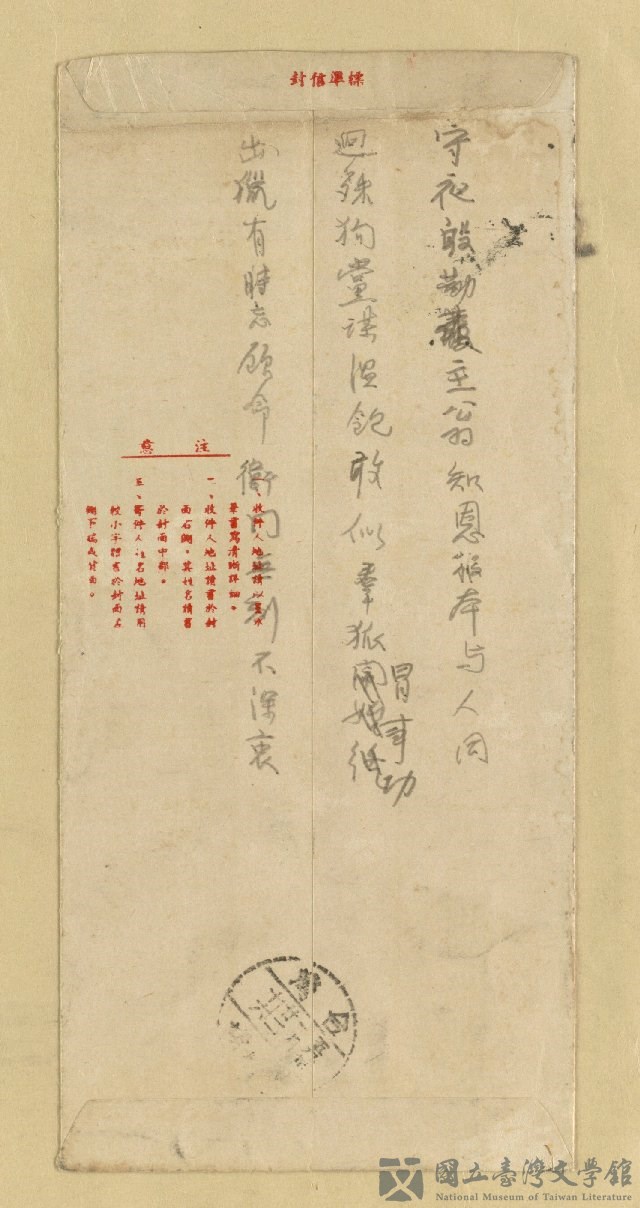 標準信封
守夜殷勤護主翁知恩報本与人同
迥殊狗黨謀溫飽敢似羣狐冒事功
出獵有時忘顧命衛門無刻不深衷
注意
一、收件人地址請以墨水
筆書寫清晰詳細。
二、收件人地址請書於封
面右側。其姓名請書
於封面中部。
三、寄件人姓名地址請用
較小字體書於封面左
側下端或背面。
國立臺灣文學館
National Museum of Taiwan Literature